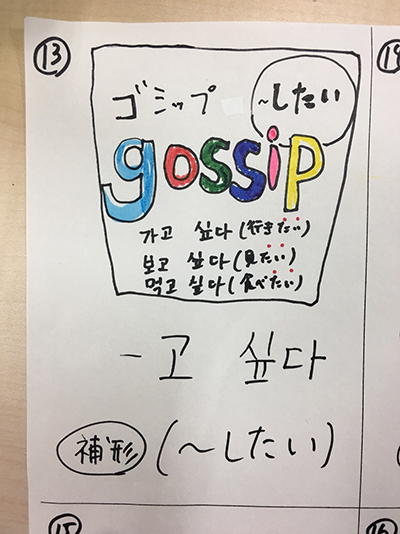 ⑬
ゴシップ
~したい
gossip
가고 싶다 (行きたい)
보고 싶다 (見たい)
먹고 싶다 (食べたい)
-고 싶다
補形 (~したい)
⑮